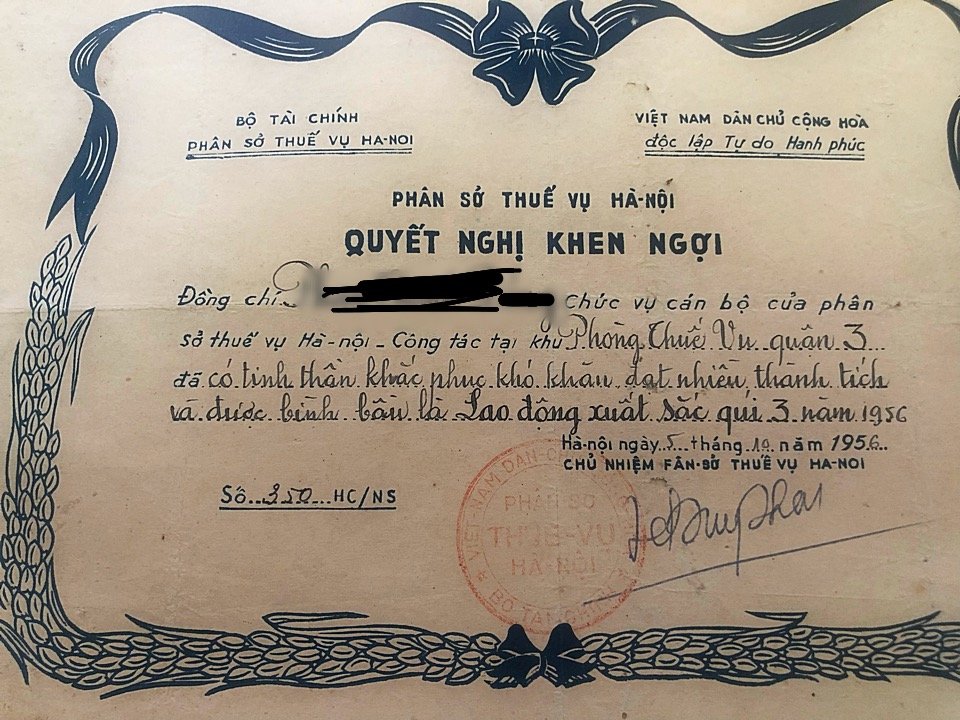 BỘ TÀI CHÍNH
PHÂN SỞ THUẾ VỤ HA-NOI
VIỆT NAM DÂN CHỦ CỘNG HOÀ
độc lập Tự do Hanh phúc
PHÂN SỞ THUẾ VỤ HÀ-NỘI
QUYẾT NGHỊ KHEN NGỢI
Đồng chí
Chức vụ cán bộ của phân
sở thuế vụ Hà-nội - Công tác tại khu Phòng Thuế Vụ quận 3
đã có tinh thần khắc phục khó khăn đạt nhiều thành tích
và được bình bầu là Lao động xuất sắc quí 3 năm 1956
Hà-nội ngày 5 tháng 10 năm 1956
CHỦ NHIỆM FÂN-SỞ THUẾ VỤ HA-NOI
Số 350 HC/NS
VIỆT NAM DÂN-C
PHÂN SỞ
THUẾ-VỤ
HÀ-NỘI
BỘ TÀI CHÍNH